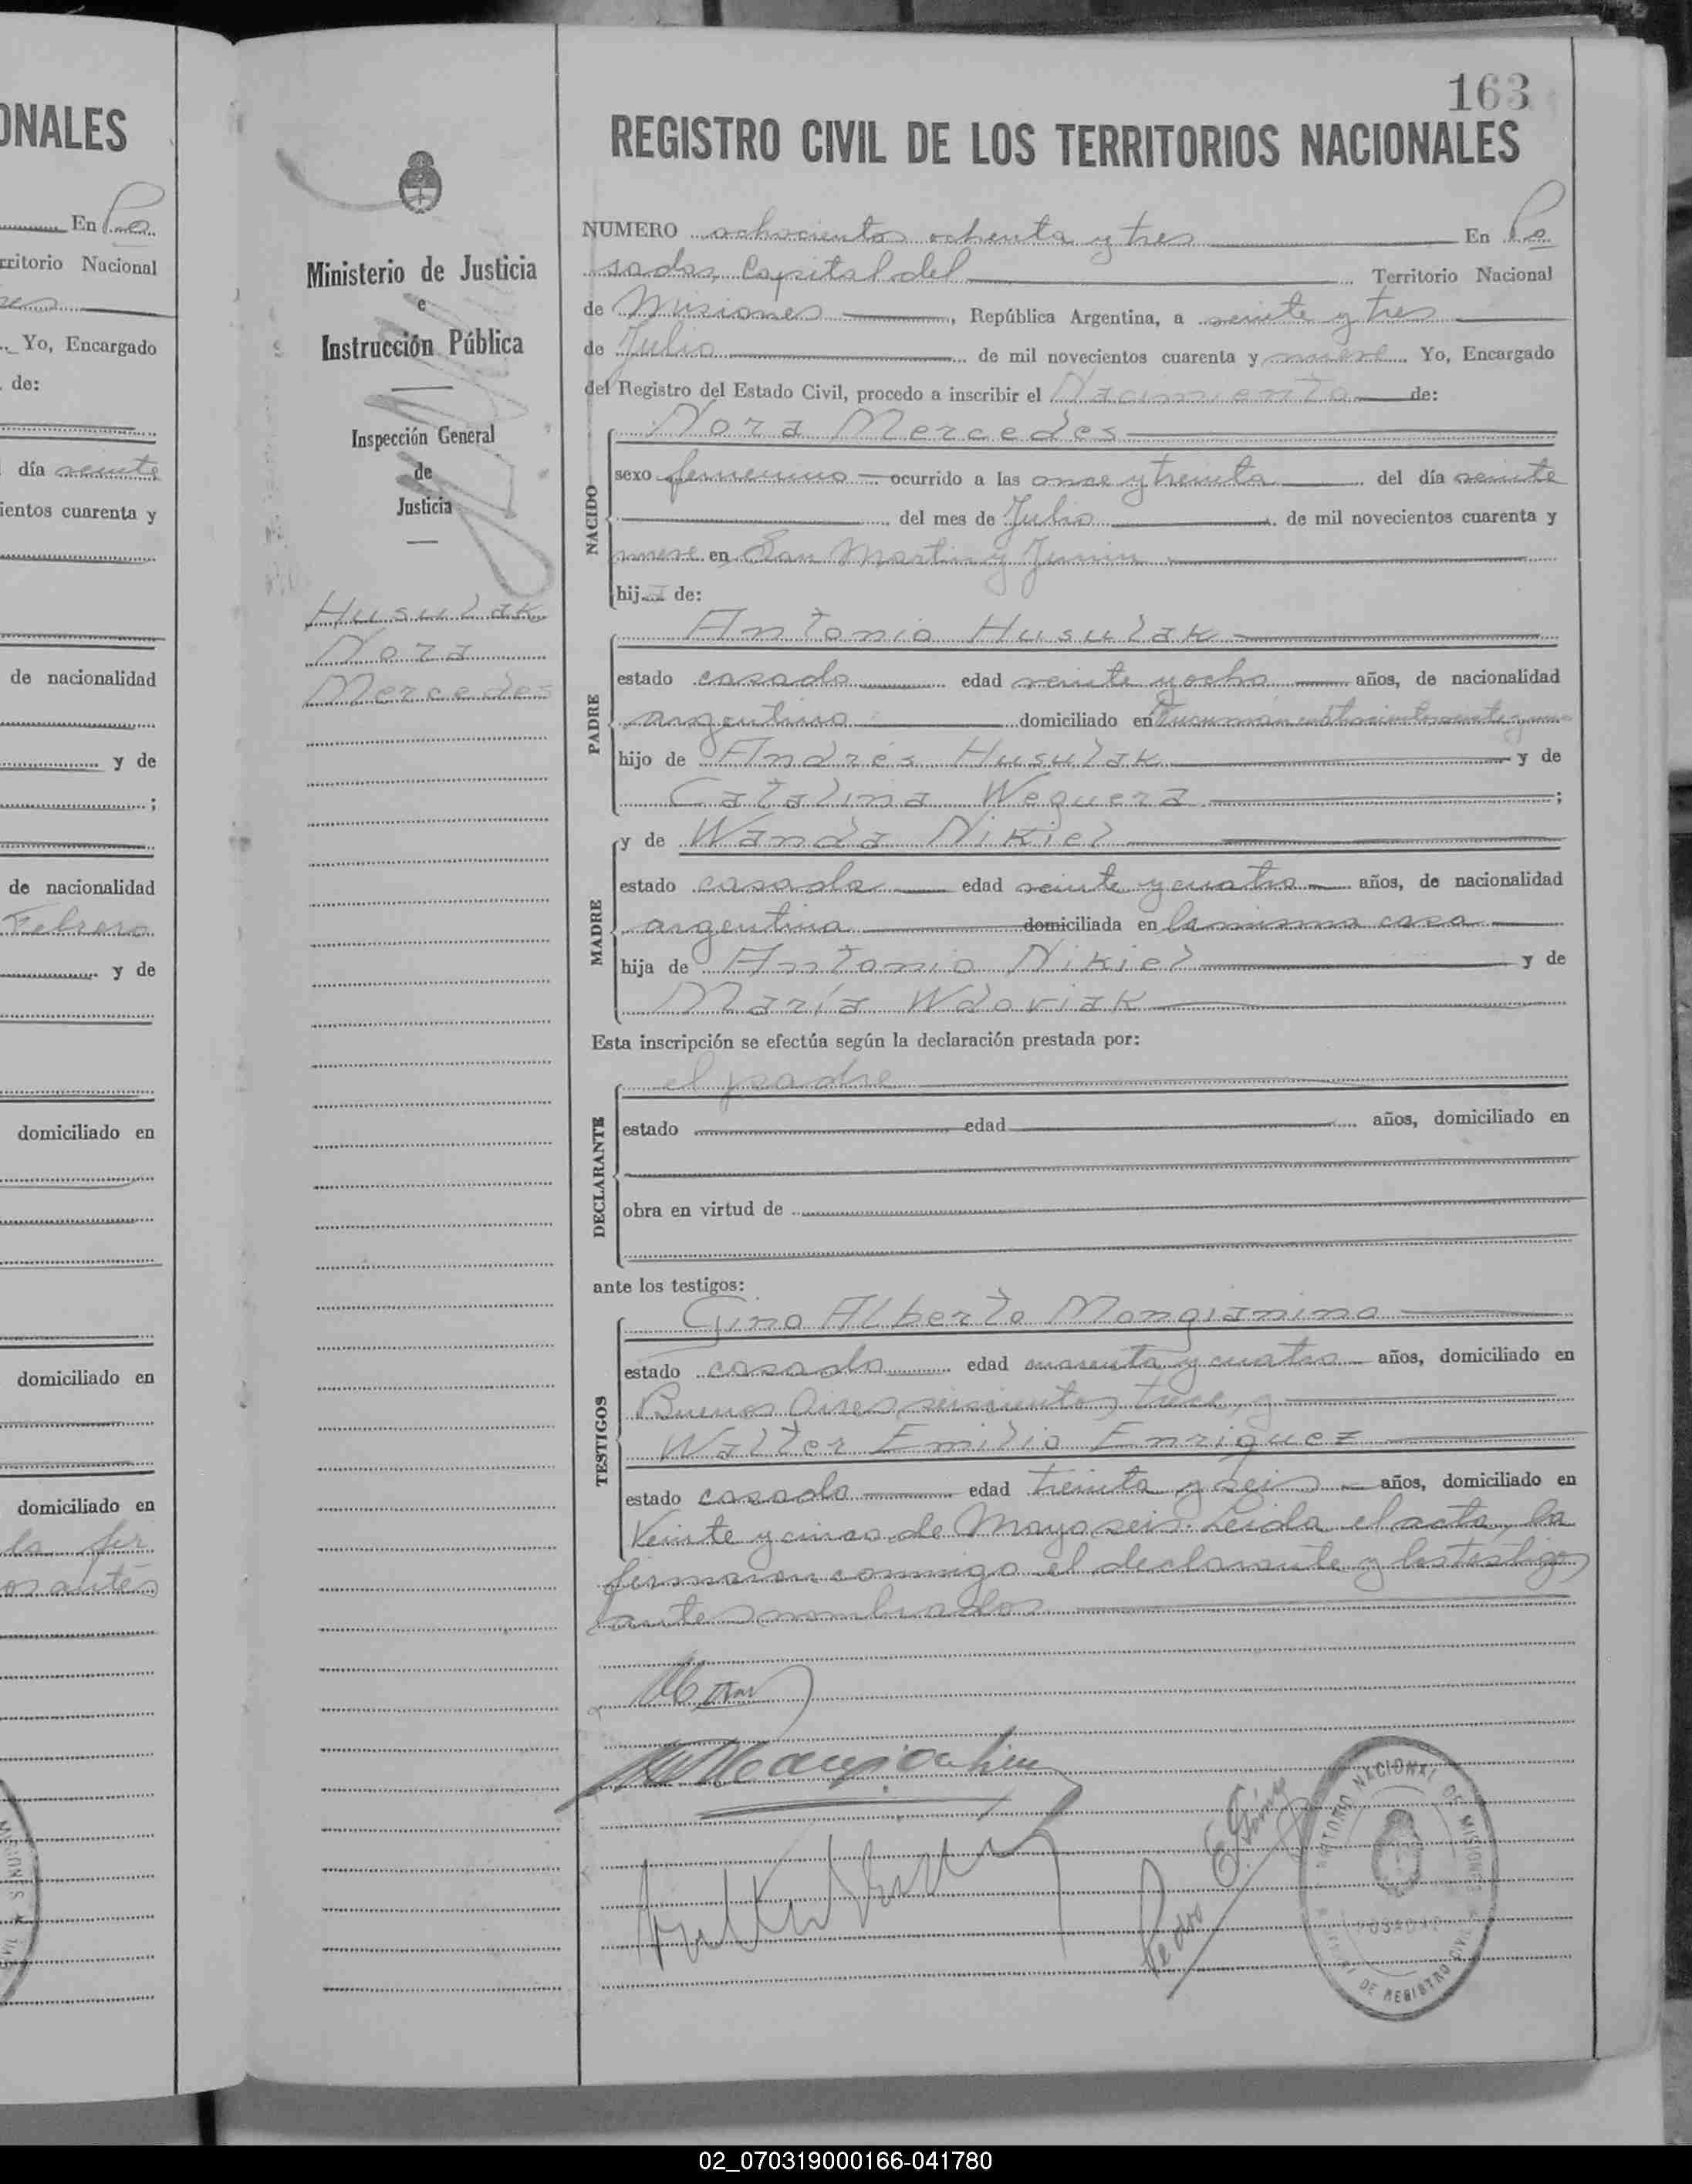 ONALES
En Po
rritorio Nacional
Yo, Encargado
de:
día veinte
ientos cuarenta y
de nacionalidad
y de
;
de nacionalidad
Febrero
y de
domiciliado en
domiciliado en
domiciliado en
la fir
os antes
Ministerio de Justicia
e
Instrucción Pública
Inspección General
de
Justicia
Husulak
Nora
Mercedes
163
REGISTRO CIVIL DE LOS TERRITORIOS NACIONALES
NUMERO ochocientos ochenta y tres En Po
sadas, Capital del Territorio Nacional
de Misiones, República Argentina, a veinte y tres
de Julio de mil novecientos cuarenta y nueve Yo, Encargado
del Registro del Estado Civil, procedo a inscribir el Nacimiento de:
NACIDO
Nora Mercedes
sexo femenino ocurrido a las once y treinta del día veinte
del mes de Julio de mil novecientos cuarenta y
nueve en San Martin y Junin
hija de:
PADRE
Antonio Husulak
estado casado edad veinte y ocho años, de nacionalidad
argentino domiciliado en Tucuman cuatrocientos veinte y uno
hijo de Andrés Husulak y de
Catalina Weguera ;
MADRE
y de Wanda Nikiel
estado casada edad veinte y cuatro años, de nacionalidad
argentina domiciliada en la misma casa
hija de Antonio Nikiel y de
María Wdoviak
Esta inscripción se efectúa según la declaración prestada por:
DECLARANTE
el padre
estado edad años, domiciliado en
obra en virtud de
ante los testigos:
TESTIGOS
Gino Alberto Mongianino
estado casado edad cuarenta y cuatro años, domiciliado en
Buenos Aires seiscientos trece, y
Walter Emilio Enriquez
estado casado edad treinta y seis años, domiciliado en
Veinte y cinco de Mayo seis. Leida el acta, la
firmaron conmigo el declarante y los testigos
antes nombrados.
Pedro E. Góny
NACIONAL DE MISIONES
DE REGISTRO CIVIL
02_070319000166-041780